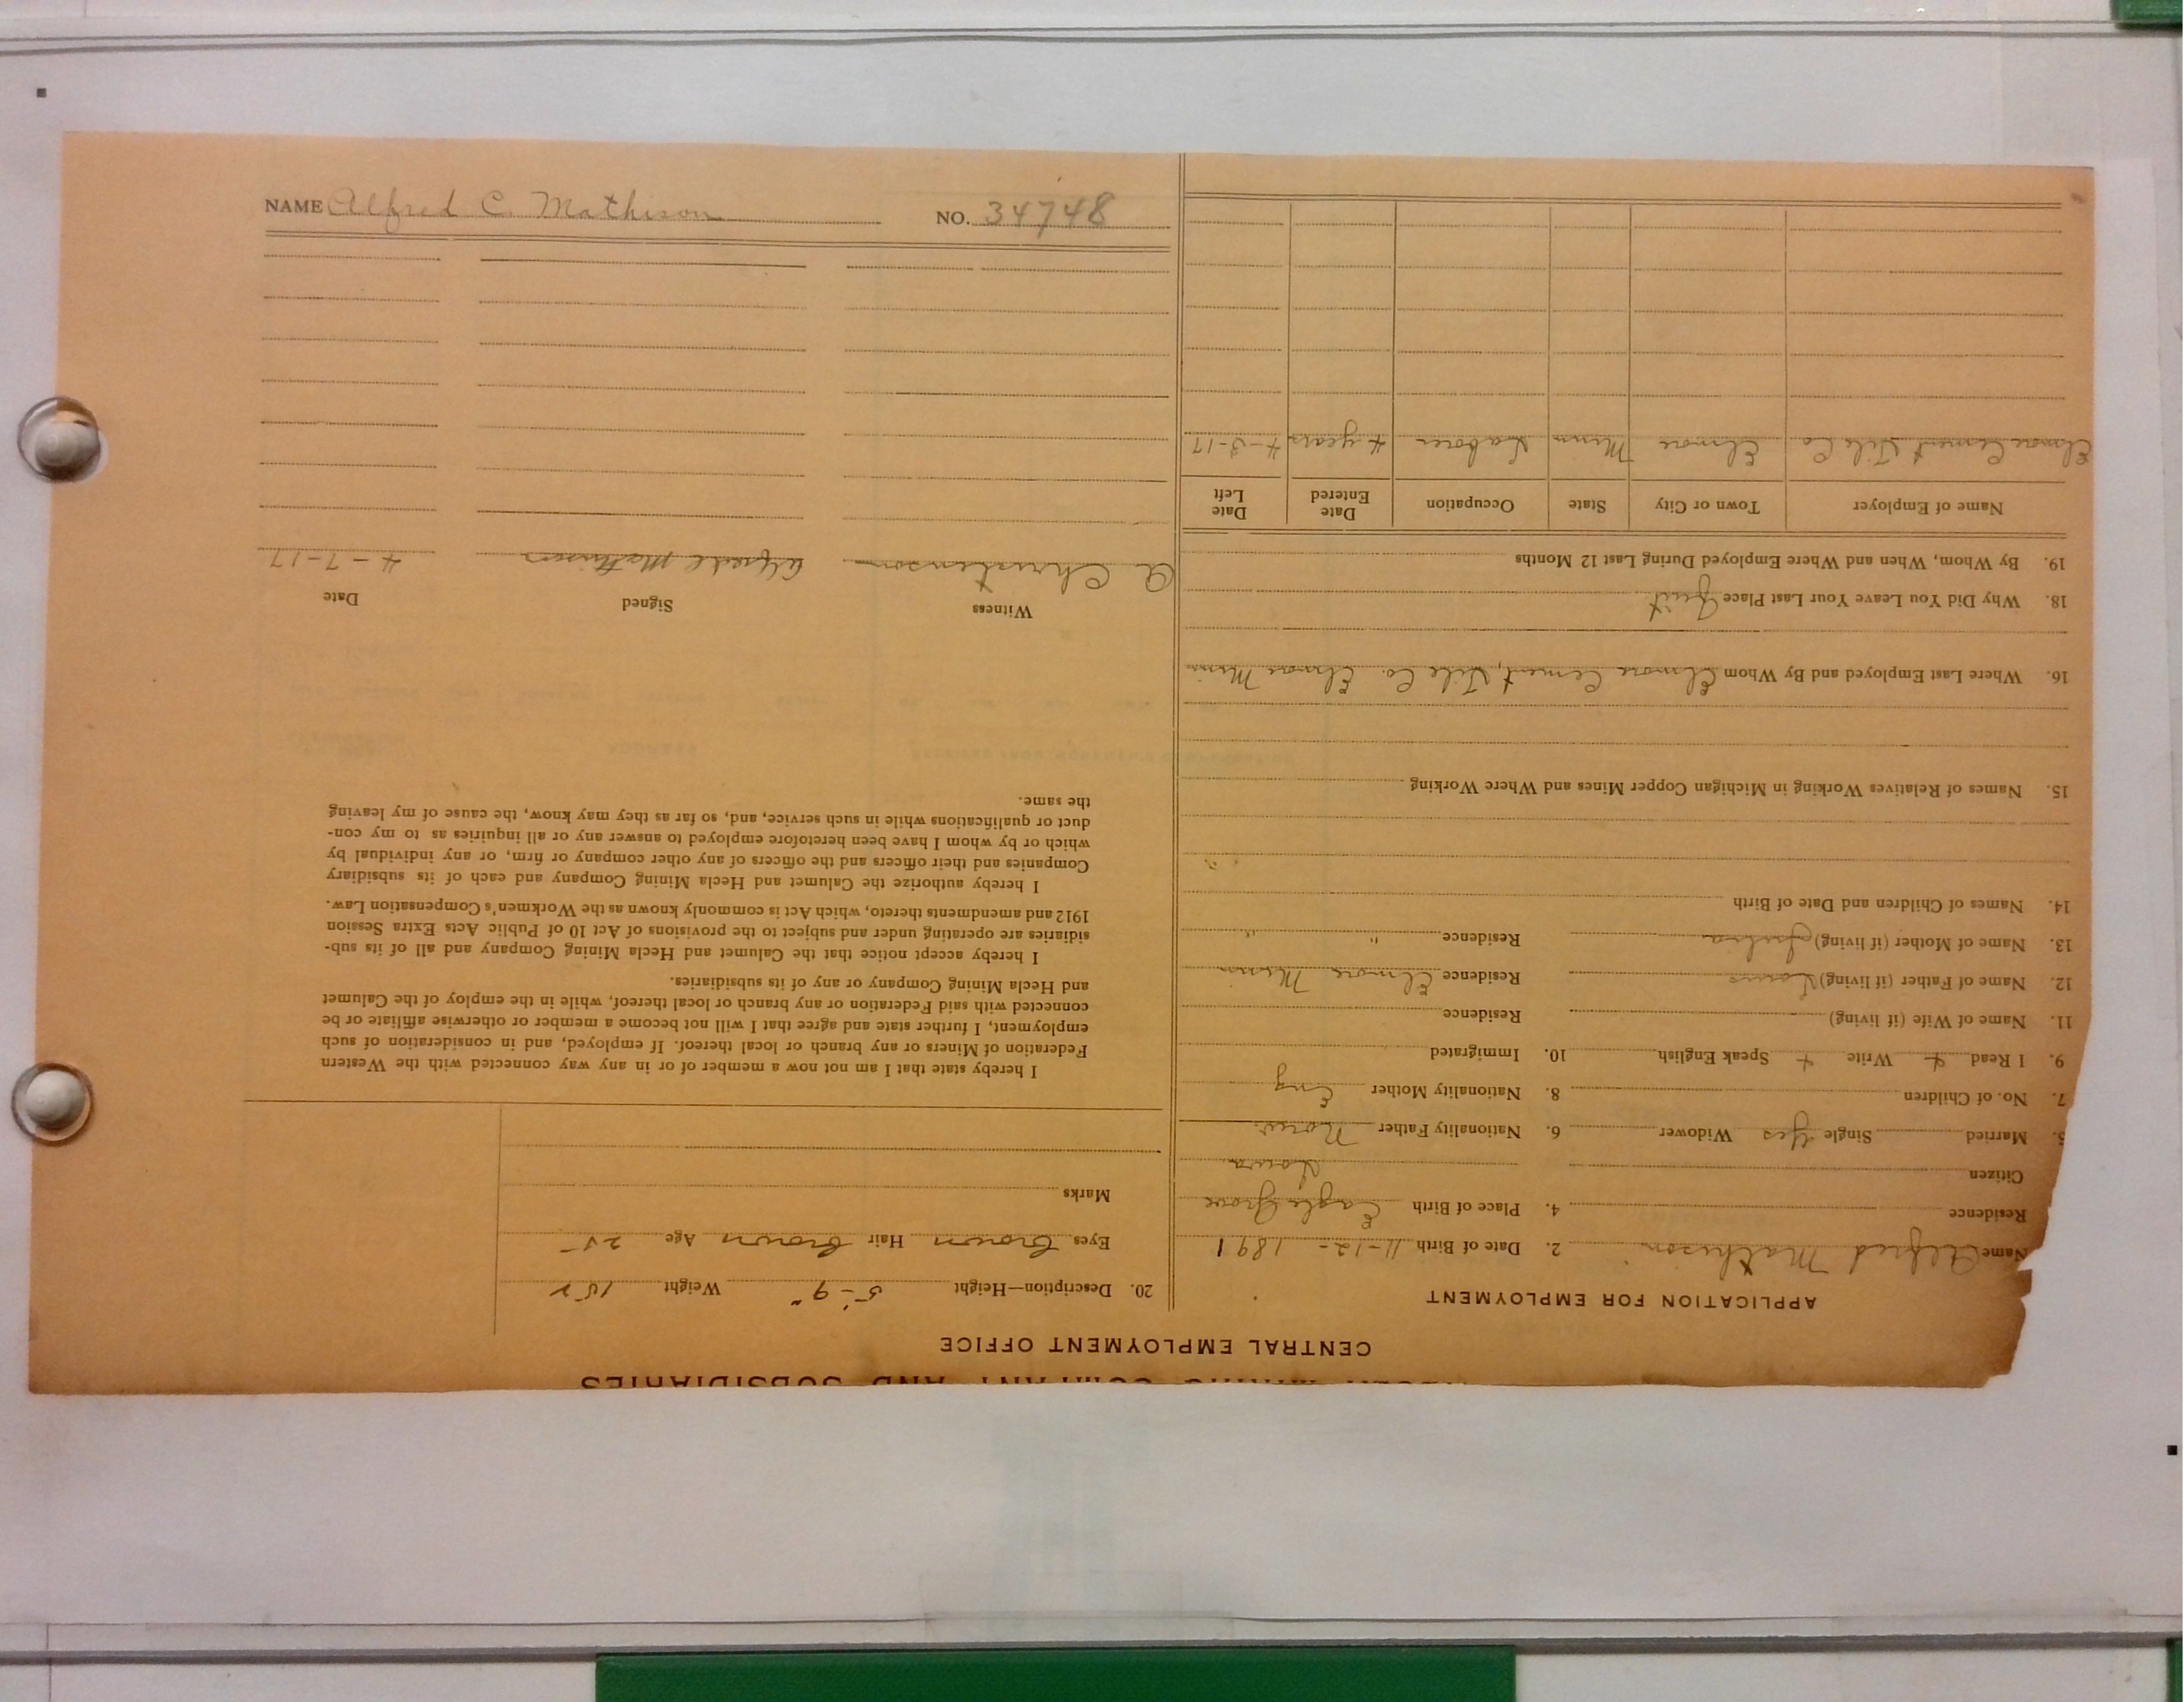 NAME Alfred C. Mathison NO. 34748
MINING COMPANY AND SUBSIDIARIES
CENTRAL EMPLOYMENT OFFICE
APPLICATION FOR EMPLOYMENT
Name Alfred Mathison 2. Date of Birth 11-12-1891
Residence 4. Place of Birth Eagle Grove
Citizen Iowa
5. Married Single Yes Widower 6. Nationality Father Norw.
7. No. of Children 8. Nationality Mother Eng
9. I Read + Write + Speak English 10. Immigrated
11. Name of Wife (if living) Residence
12. Name of Father (if living) Louis Residence Elmore Minn
13. Name of Mother (if living) Residence " "
14. Names of Children and Date of Birth
15. Names of Relatives Working in Michigan Copper Mines and Where Working
16. Where Last Employed and By Whom Elmore Cement Tile Co. Elmore Minn
18. Why Did You Leave Your Last Place Quit
19. By Whom, When and Where Employed During Last 12 Months
Name of Employer Town or City State Occupation Date Entered Date Left
Elmore Cement Tile Co Elmore Minn Laborer 4 years 4-3-17
20. Description—Height 5'-9" Weight 152
Eyes Brown Hair Brown Age 25
Marks
I hereby state that I am not now a member of or in any way connected with the Western
Federation of Miners or any branch or local thereof. If employed, and in consideration of such
employment, I further state and agree that I will not become a member or otherwise affiliate or be
connected with said Federation or any branch or local thereof, while in the employ of the Calumet
and Hecla Mining Company or any of its subsidiaries.
I hereby accept notice that the Calumet and Hecla Mining Company and all of its sub-
sidiaries are operating under and subject to the provisions of Act 10 of Public Acts Extra Session
1912 and amendments thereto, which Act is commonly known as the Workmen's Compensation Law.
I hereby authorize the Calumet and Hecla Mining Company and each of its subsidiary
Companies and their officers and the officers of any other company or firm, or any individual by
which or by whom I have been heretofore employed to answer any or all inquiries as to my con-
duct or qualifications while in such service, and, so far as they may know, the cause of my leaving
the same.
Witness Signed Date
A Christenson Alfred Mathison 4-7-17